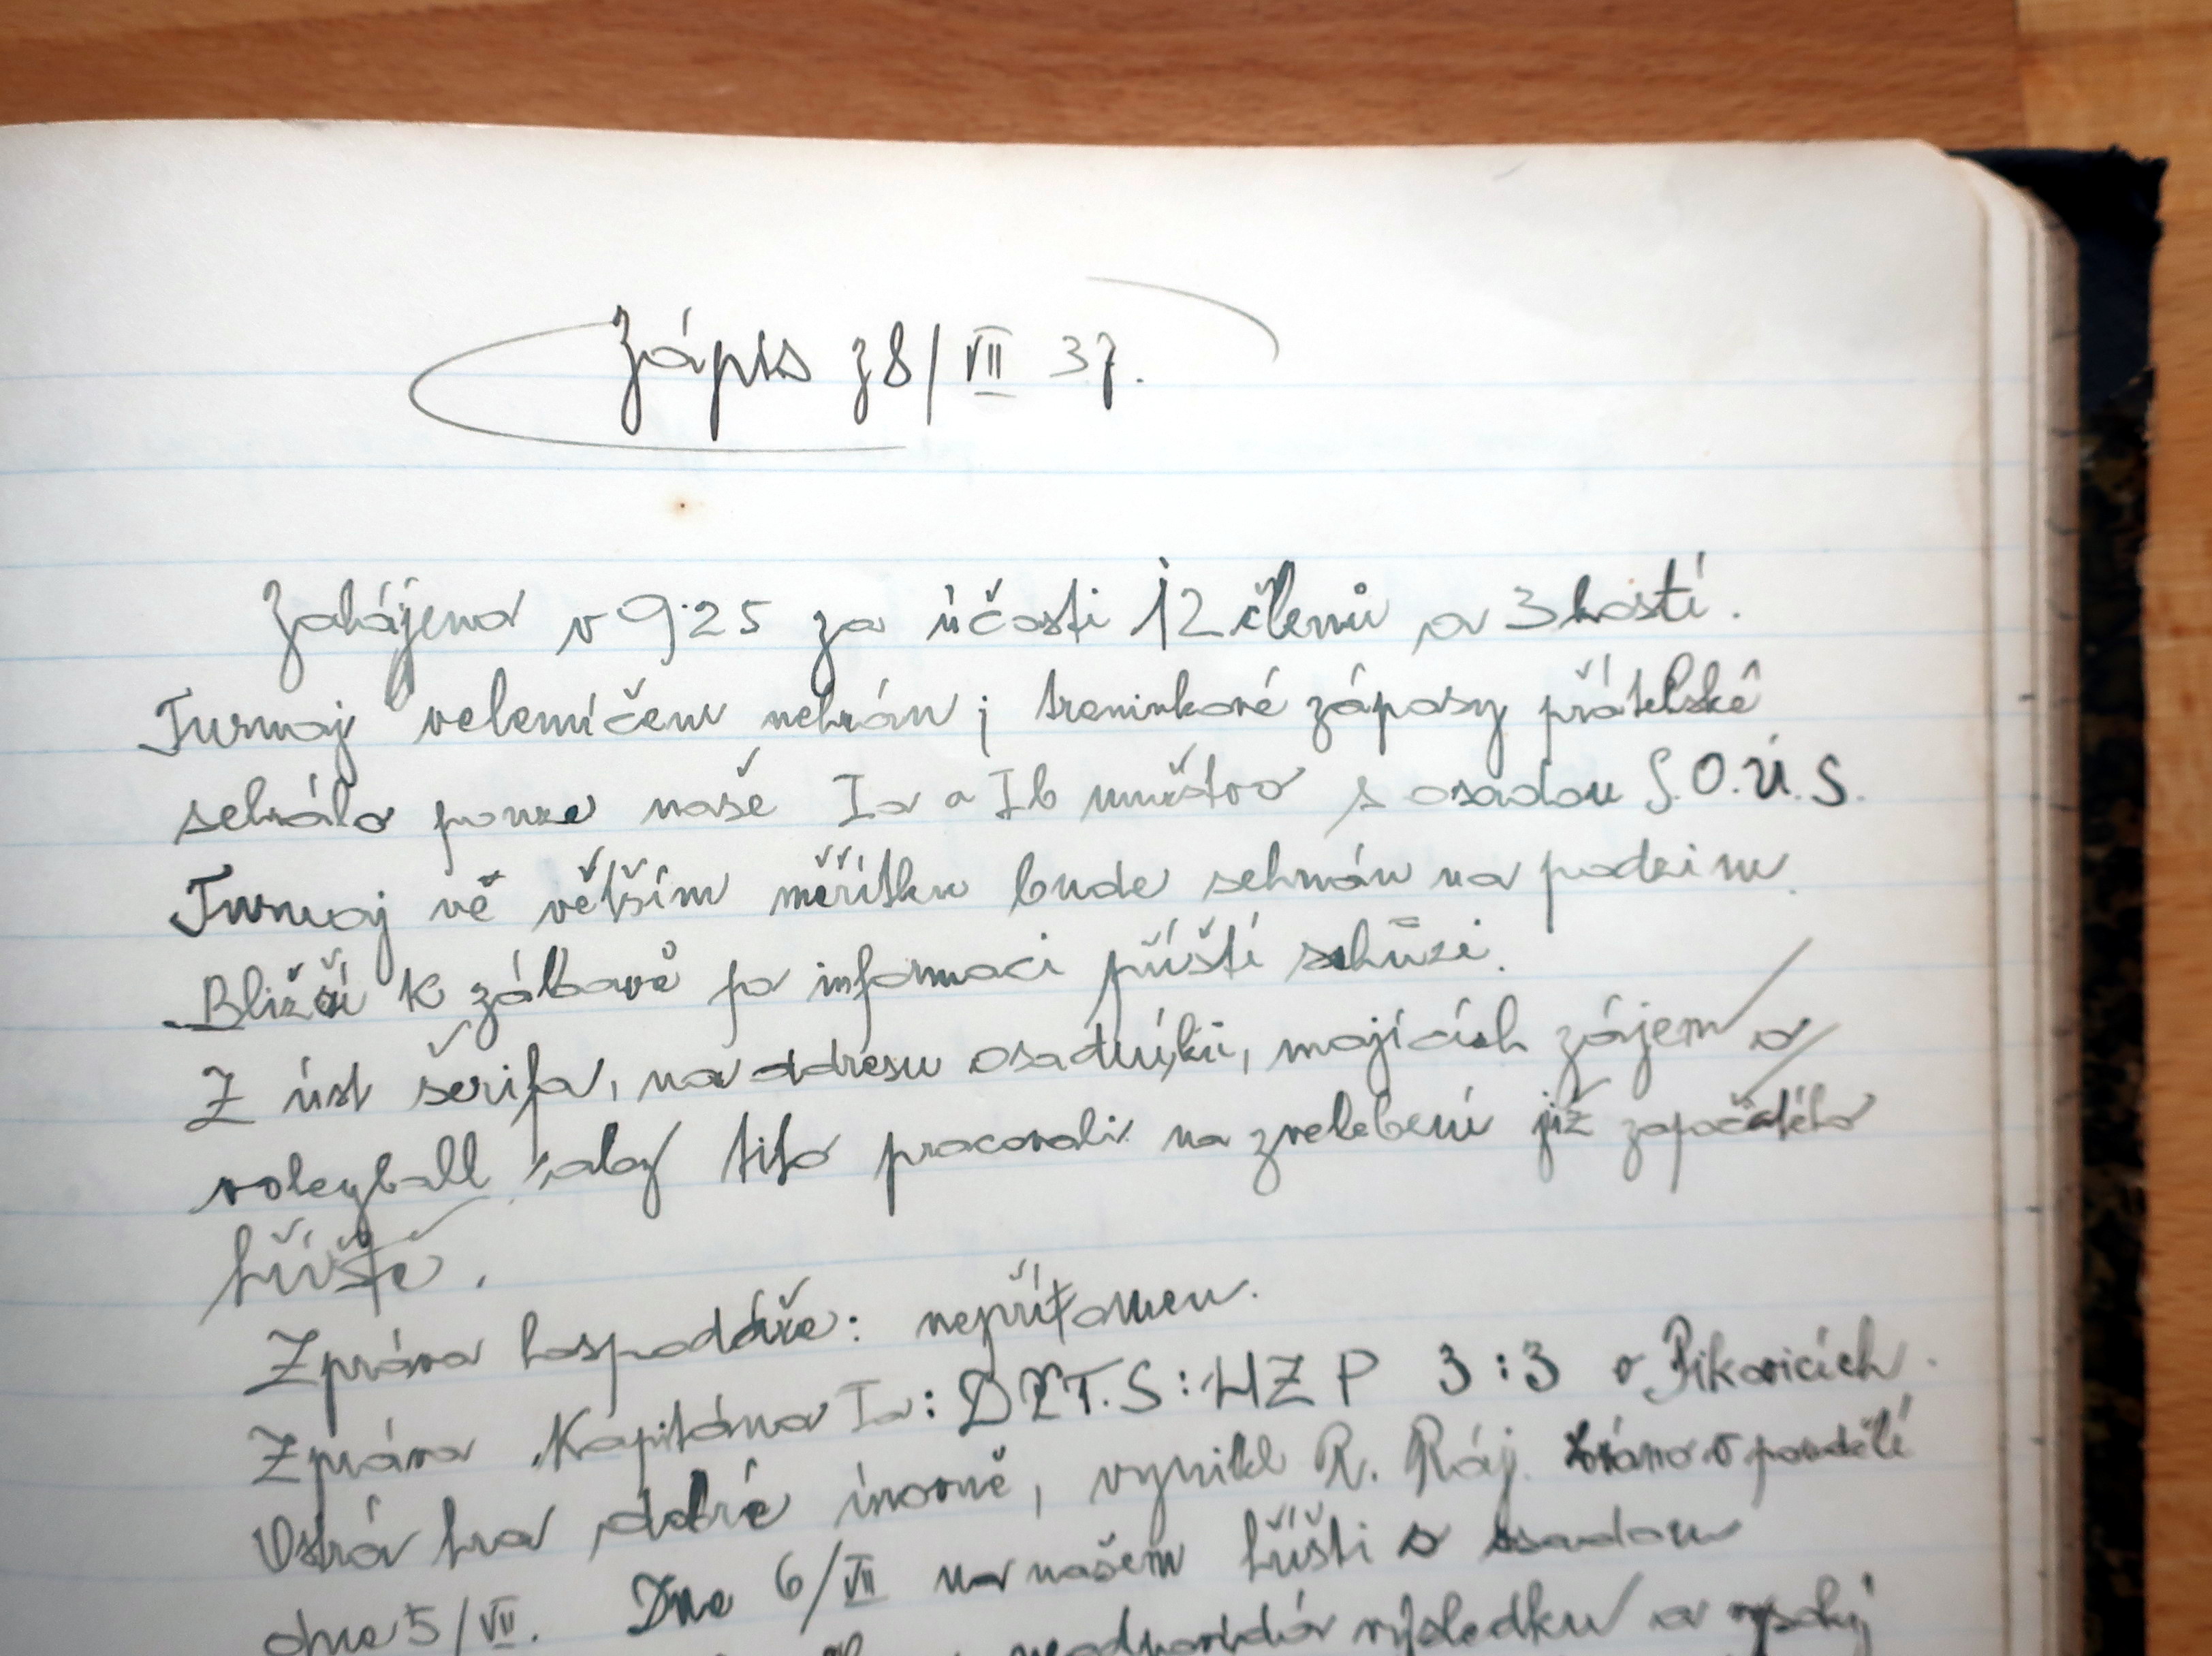 Zápis z 8/VII 37.
Zahájena v 9·25 za účasti 12 členů a 3 hostí.
Turnaj velemíčem nehrán; treninkové zápasy přátelské
sehrála pouze naše Ia a Ib mužstva s osadou S.O.Ú.S.
Turnaj ve větším měřítku bude sehrán na podzim.
Bližší k zábavě po informaci příští schůzi.
Z úst šerifa, na adresu osadníků, majících zájem o
voleyball, aby tito pracovali na zvelebení již započatého
hřiště.
Zpráva hospodáře: nepřítomen.
Zpráva Kapitána Ia: : HZP 3:3 v Pikovicích.
Ostrá hra dobré úrovně, vynikl R. Ráj. hráno v pondělí
dne 5/VII. Dne 6/VII na našem hřišti s osadou
neodpovídá výsledku a vysoký